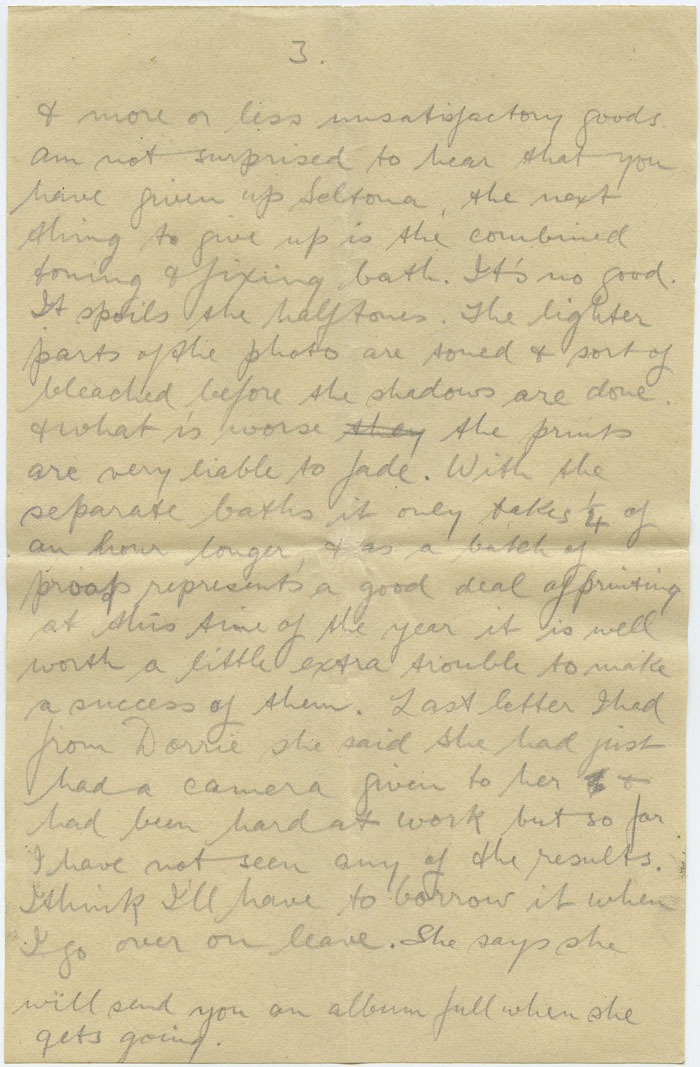 3.
& more or less unsatisfactory goods.
Am not surprised to hear that you
have given up Seltona, the next
thing to give up is the combined
toning & fixing bath. It's no good.
It spoils the halftones. The lighter
parts of the photo are toned & sort of
bleached before the shadows are done.
& what is worse they the prints
are very liable to fade. With the
separate baths it only takes ¼ of
an hour longer, & as a batch of
proofs represents a good deal of printing
at this time of the year it is well
worth a little extra trouble to make
a success of them. Last letter I had
from Dorrie she said she had just
had a camera given to her &
had been hard at work but so far
I have not seen any of the results.
I think I'll have to borrow it when
I go over on leave. She says she
will send you an album full when she
gets going.